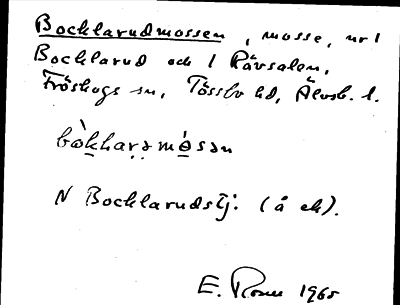 Bocklarudmossen, mosse, nr 1
Bocklarud och 1 Rävsalen,
Fröskogs sn, Tössbo hd, Älvsb. l.
bòkhaṛə mósən
N Bocklarudstj. (å ek).
E. 1965